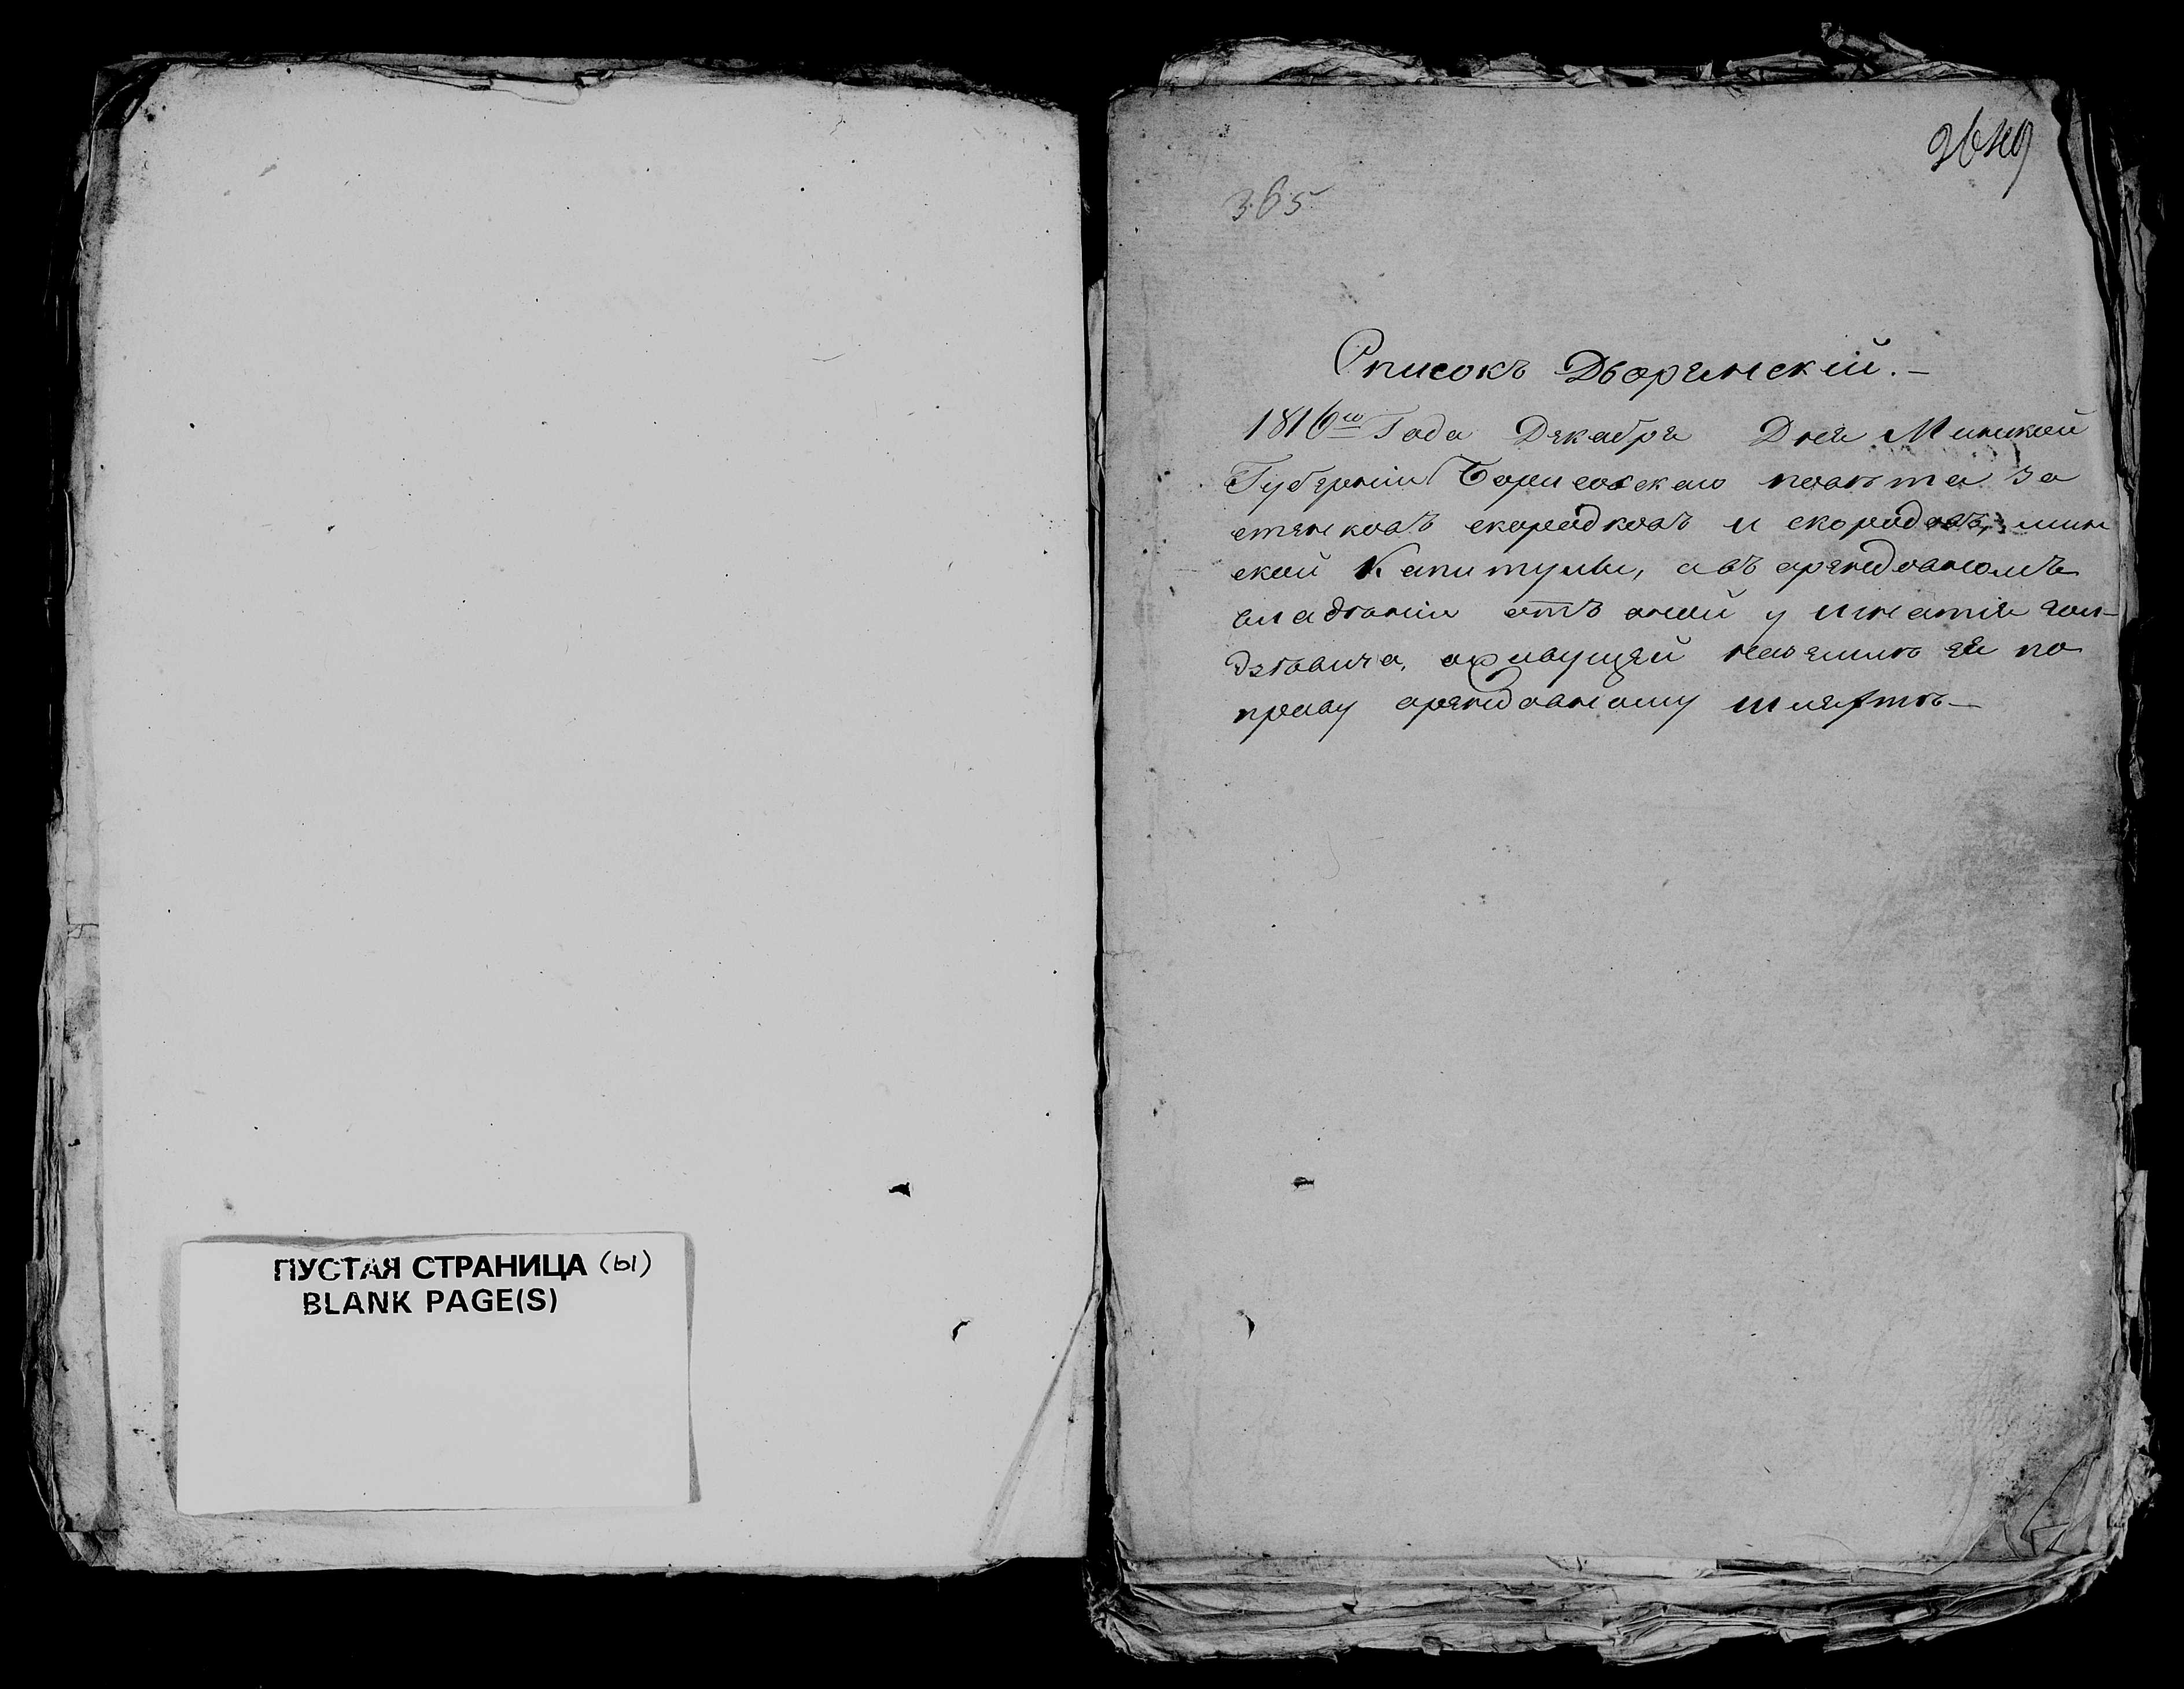 ПУСТАЯ СТРАНИЦА (ы)
BLANK PAGE(S)
365
Списокъ Дворянский.-
1816го Года Декабря Дня Минской
Губернии Борисовскаго повѣта за
стенковъ скородковъ и скородовъ, мин
ской Капитулы, авъ арендовномъ
владѣнии отъ оной у игнатия
дзѣвича, оживущей на землѣ ея по
праву арендовному шляхтѣ-